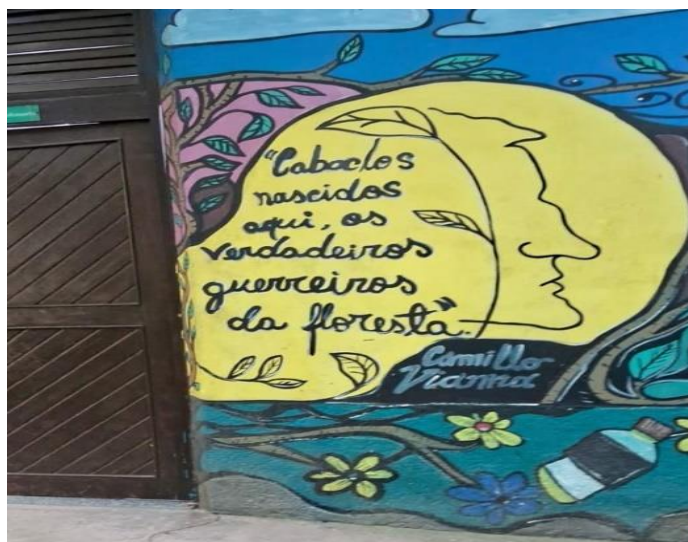 "Caboclos
nascidos
aqui, os
verdadeiros
guerreiros
da floresta".
Camillo
Vianna